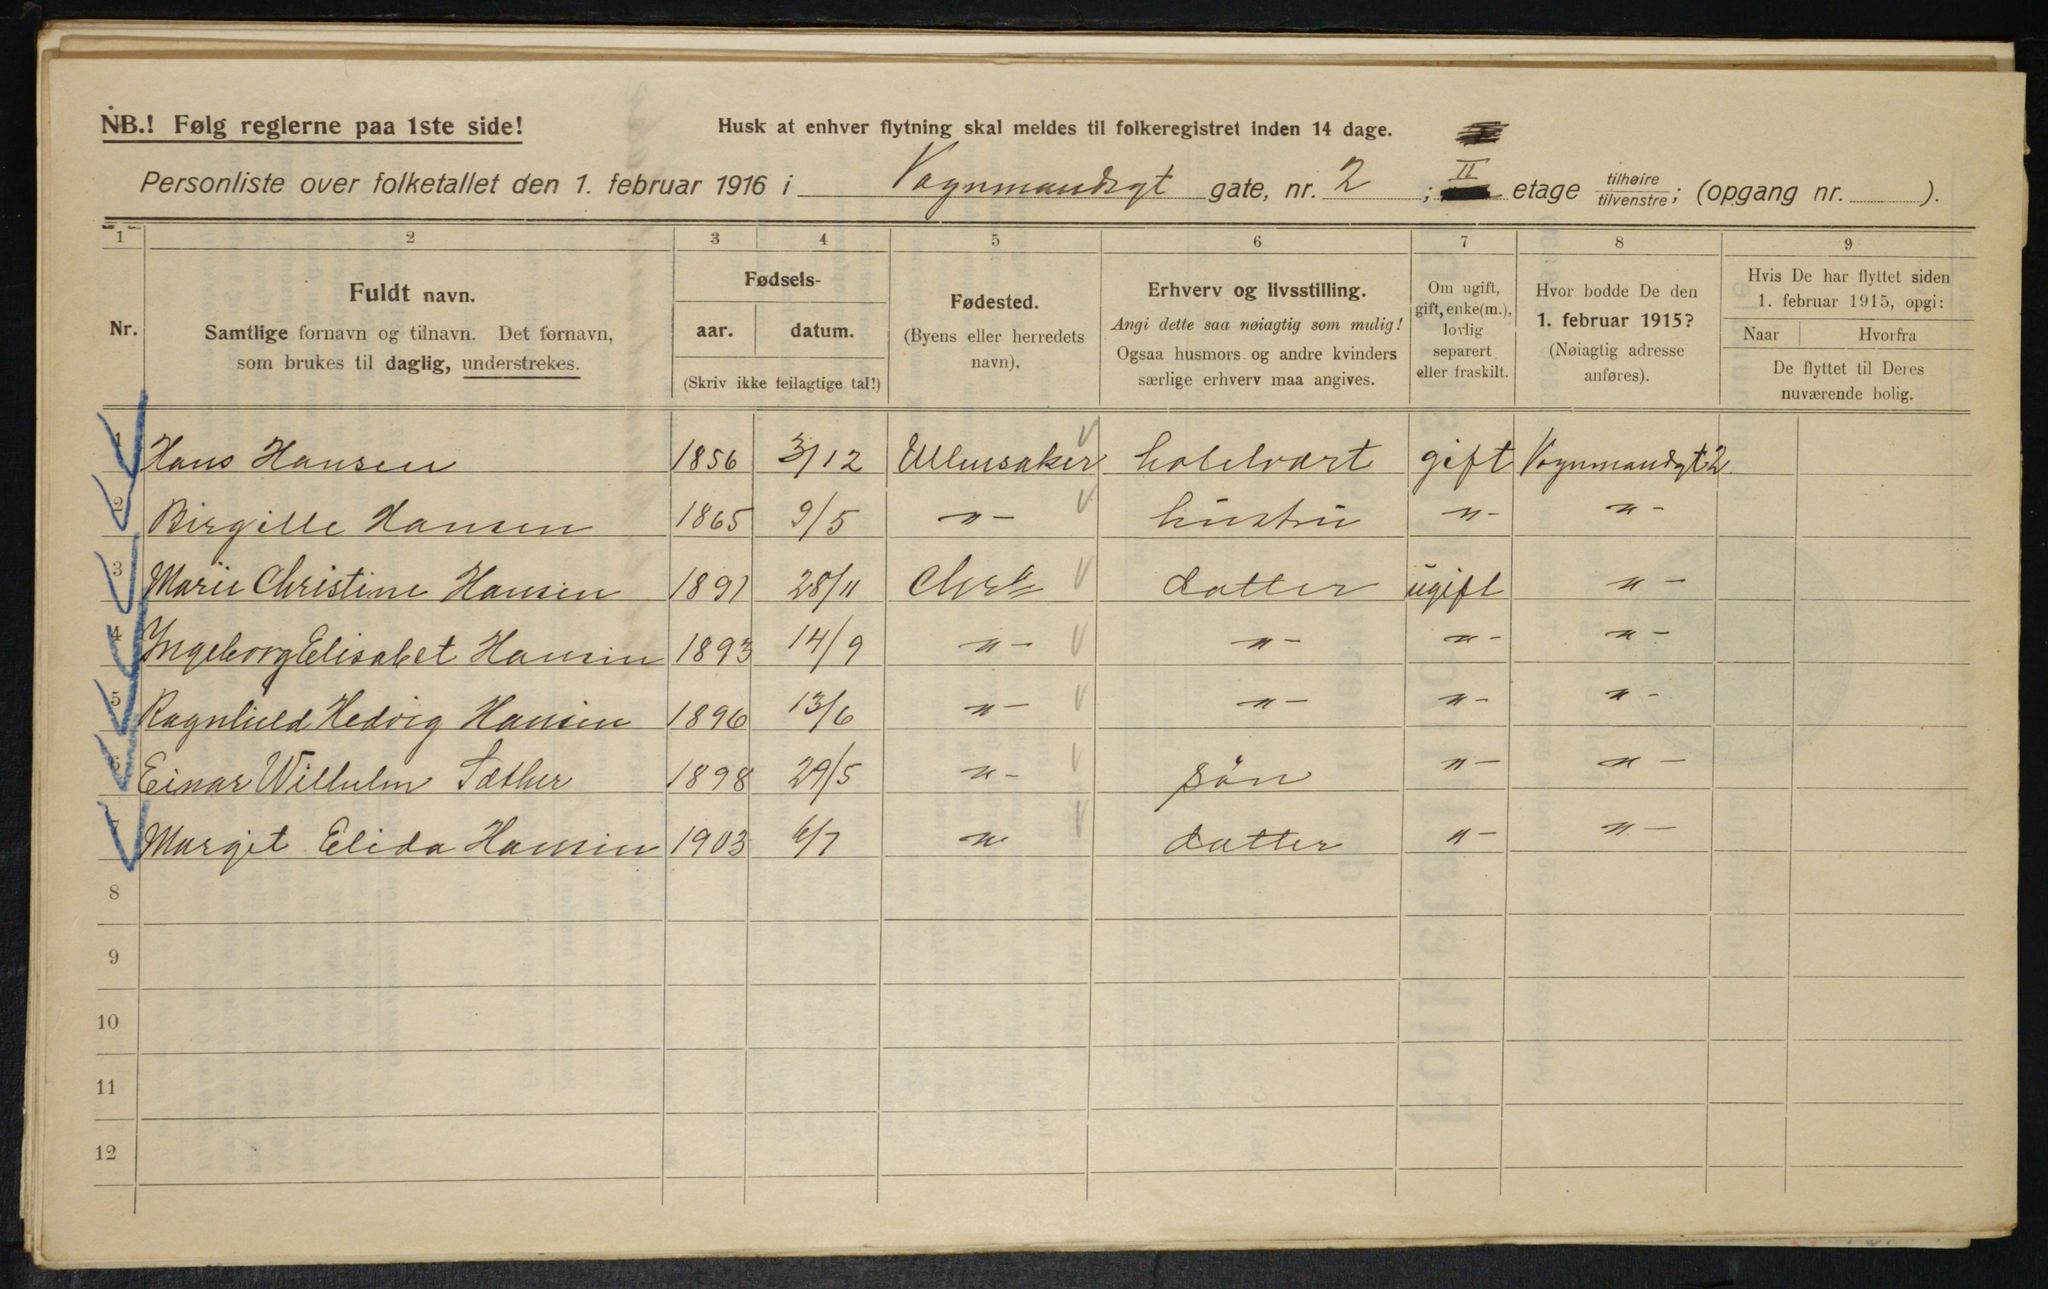 NB.! Følg reglerne paa 1ste side!
Husk at enhver flytning skal meldes til folkeregistret inden 14 dage.
Personliste over folketallet den 1. februar 1916 i Vognmandsgt gate, nr. 2 ; II etage tilhøire/tilvenstre; (opgang nr. ).
1 2 3 4 5 6 7 8 9
Nr.
Fuldt navn.
Samtlige fornavn og tilnavn. Det fornavn,
som brukes til daglig, understrekes.
Fødsels-
aar. datum.
(Skriv ikke feilagtige tal!)
Fødested.
(Byens eller herredets
navn).
Erhverv og livsstilling.
Angi dette saa nøiagtig som mulig!
Ogsaa husmors og andre kvinders
særlige erhverv maa angives.
Om ugift,
gift, enke(m.),
lovlig
separert
eller fraskilt.
Hvor bodde De den
1. februar 1915?
(Nøiagtig adresse
anføres).
Hvis De har flyttet siden
1. februar 1915, opgi:
Naar Hvorfra
De flyttet til Deres
nuværende bolig.
1 Hans Hansen 1856 3/12 Ullensaker hotelvært gift Vognmandgt 2
2 Birgitte Hansen 1865 9/5 " - hustru " - " -
3 Marie Christine Hansen 1891 28/11 Chr. datter ugift " -
4 Ingeborg Elisabet Hansen 1893 14/9 " - " - " - " -
5 Ragnhild Hedvig Hansen 1896 13/6 " - " - " - " -
6 Einar Wilhelm Sæther 1898 29/5 " - søn " - " -
7 Margit Elida Hansen 1903 6/7 " datter " - " -
8
9
10
11
12